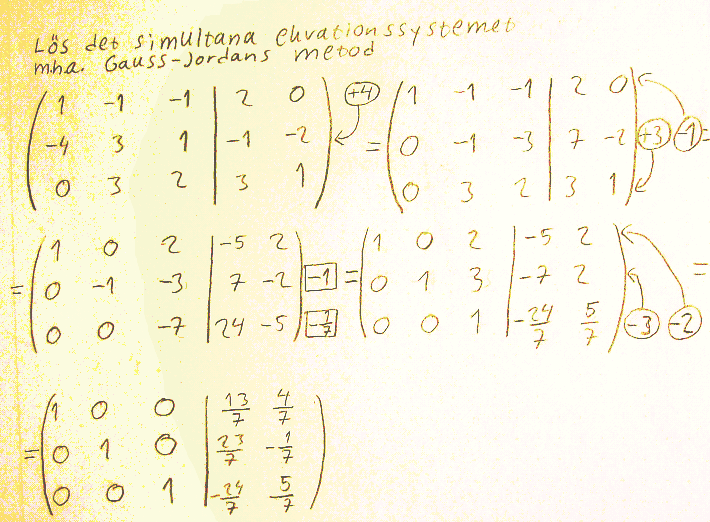 Lös det simultana ekvationssystemet
mha. Gauss-Jordans metod
( 1 -1 -1 | 2 0 ) (+4) = ( 1 -1 -1 | 2 0 )
( -4 3 1 | -1 -2 ) = ( 0 -1 -3 | 7 -2 ) (+3) (-1) =
( 0 3 2 | 3 1 ) ( 0 3 2 | 3 1 )
( 1 0 2 | -5 2 ) ( 1 0 2 | -5 2 )
= ( 0 -1 -3 | 7 -2 ) [-1] = ( 0 1 3 | -7 2 ) =
( 0 0 -7 | 24 -5 ) [-1/7] ( 0 0 1 | -24/7 5/7 ) (-3) (-2)
( 1 0 0 | 13/7 4/7 )
= ( 0 1 0 | 23/7 -1/7 )
( 0 0 1 | -24/7 5/7 )